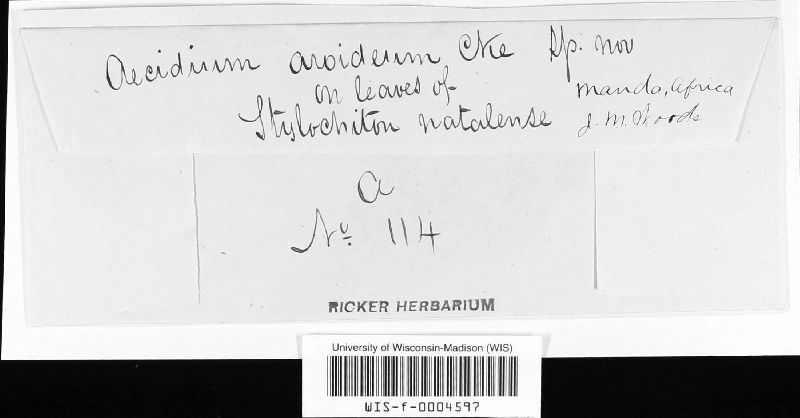 Aecidium aroideum Cke Sp. nov
on leaves of
Stylochiton natalense
Manda, Africa
J. M. Woods
a
No. 114
RICKER HERBARIUM
University of Wisconsin-Madison (WIS)
WIS-f-0004597